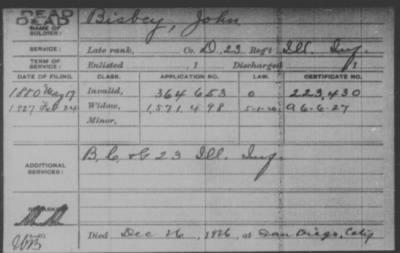 DEAD
DEAD
NAME OF SOLDIER: Bisbey, John
SERVICE: Late rank, Co. D, 23 Reg't Ill. Inf.
TERM OF SERVICE: Enlisted , 1 Discharged , 1
DATE OF FILING. CLASS. APPLICATION NO. LAW. CERTIFICATE NO.
1880 May 19 Invalid, 364653 0 223,430
1927 Widow, 1,571,498 A 6-6-27
Minor,
ADDITIONAL SERVICES: B, C, & G 23 Ill. Inf.
Died Dec 16, 1926, at San Diego, Calif